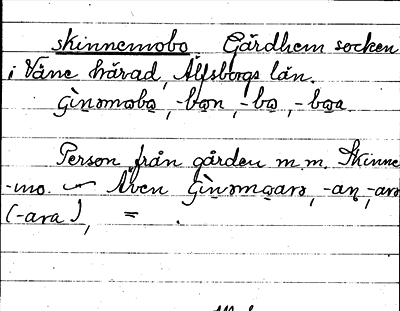 skinnemobo Gärdhem socken
i Väne härad, Älfsborgs län.
-bo̱n, -bo̱, -bo̱a
Person från gården m.m. Skinne
-mo. Även -an, -arə
(-ara), =